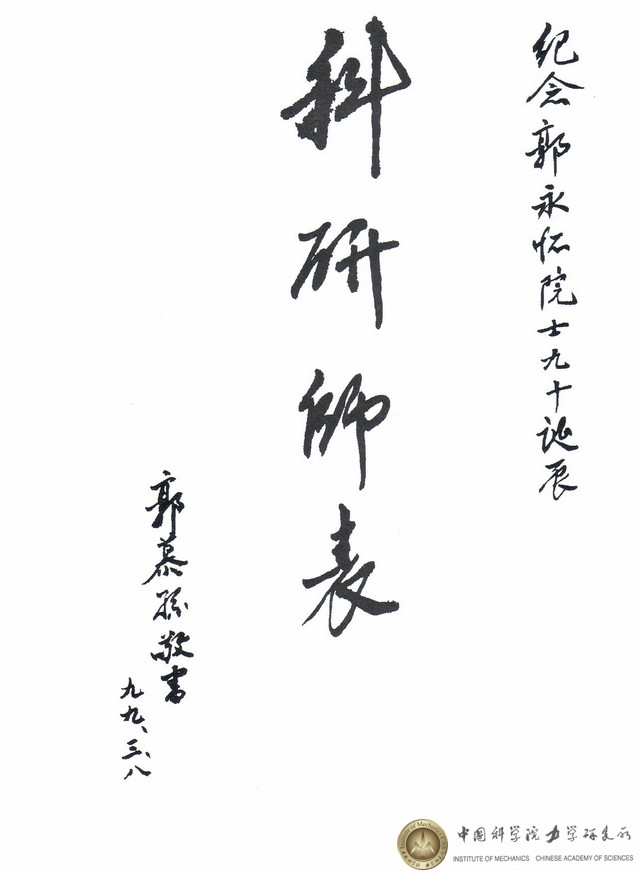 纪念郭永怀院士九十诞辰
科研师表
郭慕孙敬书
九九、三、八
中国科学院力学研究所
INSTITUTE OF MECHANICS CHINESE ACADEMY OF SCIENCES